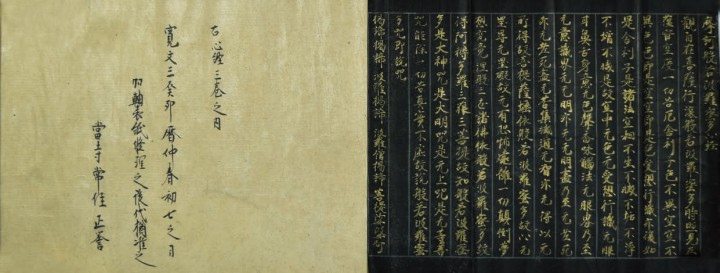 摩訶般若波羅蜜多心経
觀自在菩薩行深般若波羅蜜多時照見五
蘊皆空度一切苦厄舎利子色不異空空不
異色色即是空空即是色受想行識亦復如
是舎利子是諸法空相不生不滅不垢不淨
不増不減是故空中无色无受想行識无眼
耳鼻舌身意无色聲香味觸法无眼界乃至
无意識界无无明亦无无明盡乃至无老死
亦无老死盡无苦集滅道无智亦无得以无
所得故菩提薩埵依般若波羅蜜多故心无
罣礙无罣礙故无有恐怖遠離一切顛倒夢
想究竟涅槃三世諸佛依般若波羅蜜多故
得阿耨多羅三藐三菩提故知般若波羅蜜
多是大神咒是大明咒是无上咒是无等等
咒能除一切苦真實不虚故説般若波羅蜜
多咒即説咒
揭諦揭諦 波羅揭諦 波羅僧揭諦 菩提薩婆訶
右心經三巻之内
寛文三癸卯暦仲春初七之日
加軸表紙修理之後代猶准之
當寺常住